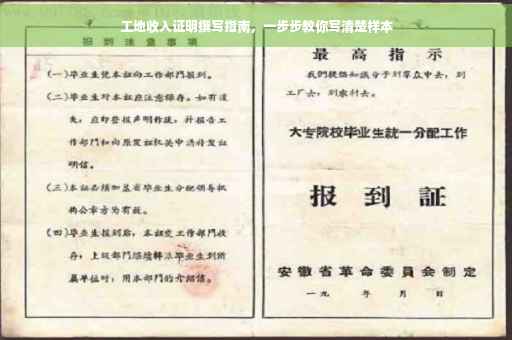 工地收入证明撰写指南，一步步教你写清楚样本
报到注意事项
(一)毕业生凭本证向工作部门报到。
(二)毕业生对本证应注意保存。如有遗
失，应即登报声明作废，并报告工
作部门和向原发证机关申请补发证
明信。
(三)本证必须加盖省毕业生分配领导机
构公章方为有效。
(四)毕业生报到后，本证交工作部门收
存；上级部门继续转派毕业生到所
属单位时，用本部门的介绍信。
最高指示
我们提倡知识分子到群众中去，到
工厂去，到农村去。
大专院校毕业生統一分配工作
报到証
安徽省革命委員会制定
一九 年 月 日